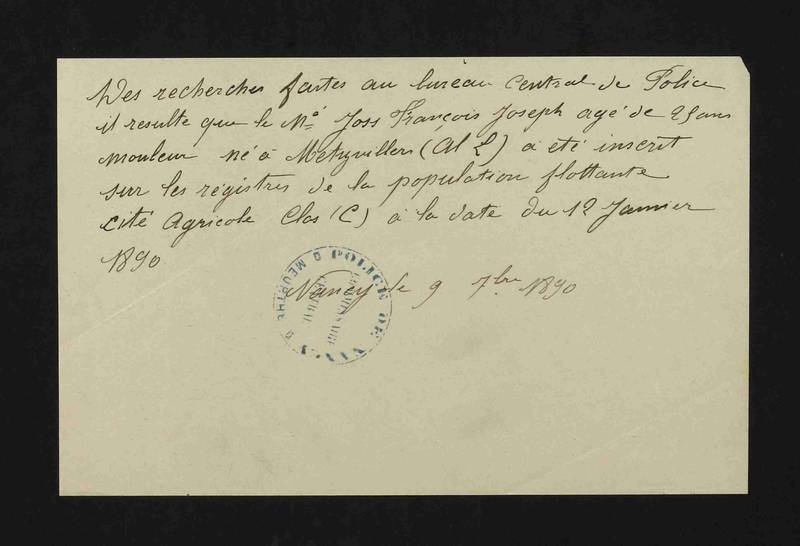 Des recherches faites au bureau Central de Police
il resulte que le Né Joss François Joseph agé de 25 ans
mouleur né à Metzvillers (Al L) a été inscrit
sur les régistres de la population flottante
cité Agricole Clos (C) à la date du 12 Janvier
1890
Nancy le 9 7bre 1890
POLICE DE NANCY
MEURTHE
COMMISSAIRE
CENTRAL